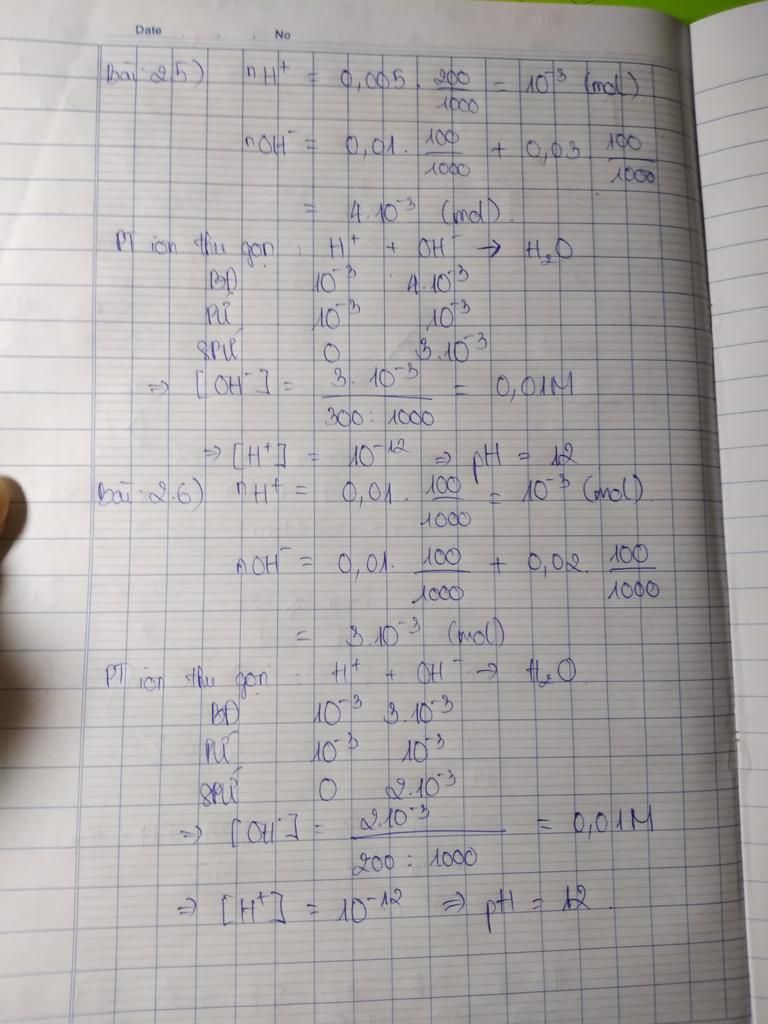 Date No
Bài 2.5) nH⁺ = 0,005 . 200/1000 = 10⁻³ (mol)
nOH⁻ = 0,01 . 100/1000 + 0,03 100/1000
= 4.10⁻³ (mol).
PT ion thu gọn : H⁺ + OH⁻ → H₂O
BĐ 10⁻³ 4.10⁻³
PƯ 10⁻³ 10⁻³
SPƯ 0 3.10⁻³
⇒ [OH⁻] = 3.10⁻³/300 : 1000 = 0,01M
⇒ [H⁺] = 10⁻¹² ⇒ pH = 12
Bài 2.6) nH⁺ = 0,01 . 100/1000 = 10⁻³ (mol)
nOH⁻ = 0,01 . 100/1000 + 0,02 . 100/1000
= 3.10⁻³ (mol)
PT ion thu gọn : H⁺ + OH⁻ → H₂O
BĐ 10⁻³ 3.10⁻³
PƯ 10⁻³ 10⁻³
SPƯ 0 2.10⁻³
⇒ [OH⁻] = 2.10⁻³/200 : 1000 = 0,01M
⇒ [H⁺] = 10⁻¹² ⇒ pH = 12.